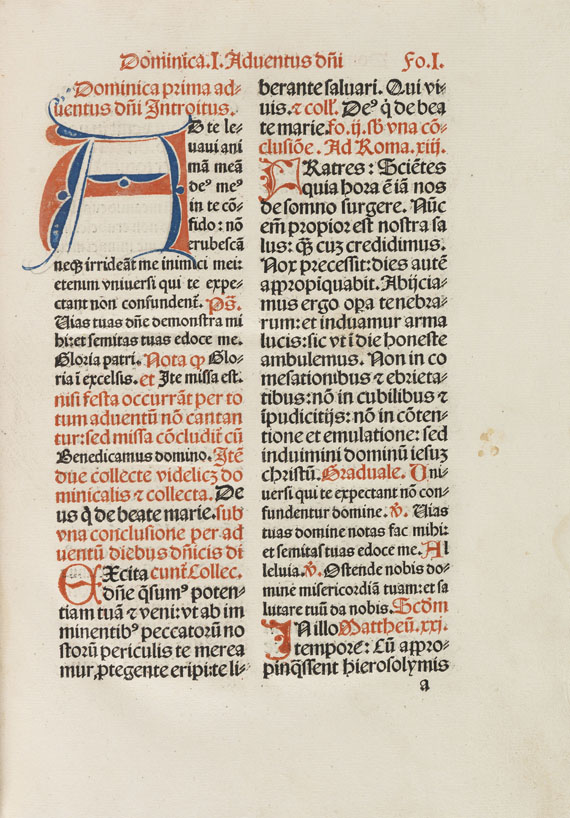 Dominica.I.Aduentus dñi Fo.I.
Dominica prima ad⸗
uentus dñi Introitus.
AD te le⸗
uaui ani
mã meã
deꝰ meꝰ
in te cõ⸗
fido: nõ
erubescã
neqꝫ irrideãt me inimici mei:
etenim vniuersi qui te expe⸗
ctant non confundent̃. Ps̃.
Uias tuas dñe demonstra mi
hi: et semitas tuas edoce me.
Gloria patri. Nota ꝙ Glo⸗
ria ĩ excelsis. et Ite missa est.
nisi festa occurrãt per to
tum aduentũ nõ cantan
tur: sed missa cõcludit̃ cũ
Benedicamus domino. Itẽ
due collecte videlicꝫ do
minicalis ⁊ collecta. De
us q̃ de beate marie. sub
vna conclusione per ad
uentũ diebus dñicis di
EXcita cunt̃. Collec.
dñe q̃sumꝰ poten⸗
tiam tuã ⁊ veni: vt ab im
minentibꝰ peccatorũ no
strorũ periculis te merea
mur ꝓtegente eripi: te li⸗
berante saluari. Qui vi⸗
uis. ⁊ coll̃. Deꝰ q̃ de bea
te marie. fo. ij. sb̃ vna cõ⸗
clusiõe. Ad Roma. xiij.
FRatres: Sciẽtes
quia hora ẽ iã nos
de somno surgere. Nũc
em̃ propior est nostra sa
lus: qꝫ̃ cuꝫ credidimus.
Nox precessit: dies autẽ
appropiquabit. Abijcia⸗
mus ergo oꝑa tenebra⸗
rum: et induamur arma
lucis: sic vt ĩ die honeste
ambulemus. Non in co
mesationibus ⁊ ebrieta⸗
tibus: nõ in cubilibus ⁊
ĩpudicitijs: nõ in cõten⸗
tione et emulatione: sed
induimini dominũ iesuꝫ
christũ. Graduale. Uni⸗
uersi qui te expectant nõ con⸗
fundentur domine. ꝟ. Uias
tuas domine notas fac mihi:
et semitas tuas edoce me. Al
leluia. ꝟ. Ostende nobis do⸗
mine misericordiã tuam: et sa
lutare tuũ da nobis. Scdm
IN illo Mattheũ. xxj.
tempore: Cũ appro⸗
pinq̃ssent hierosolymis
a